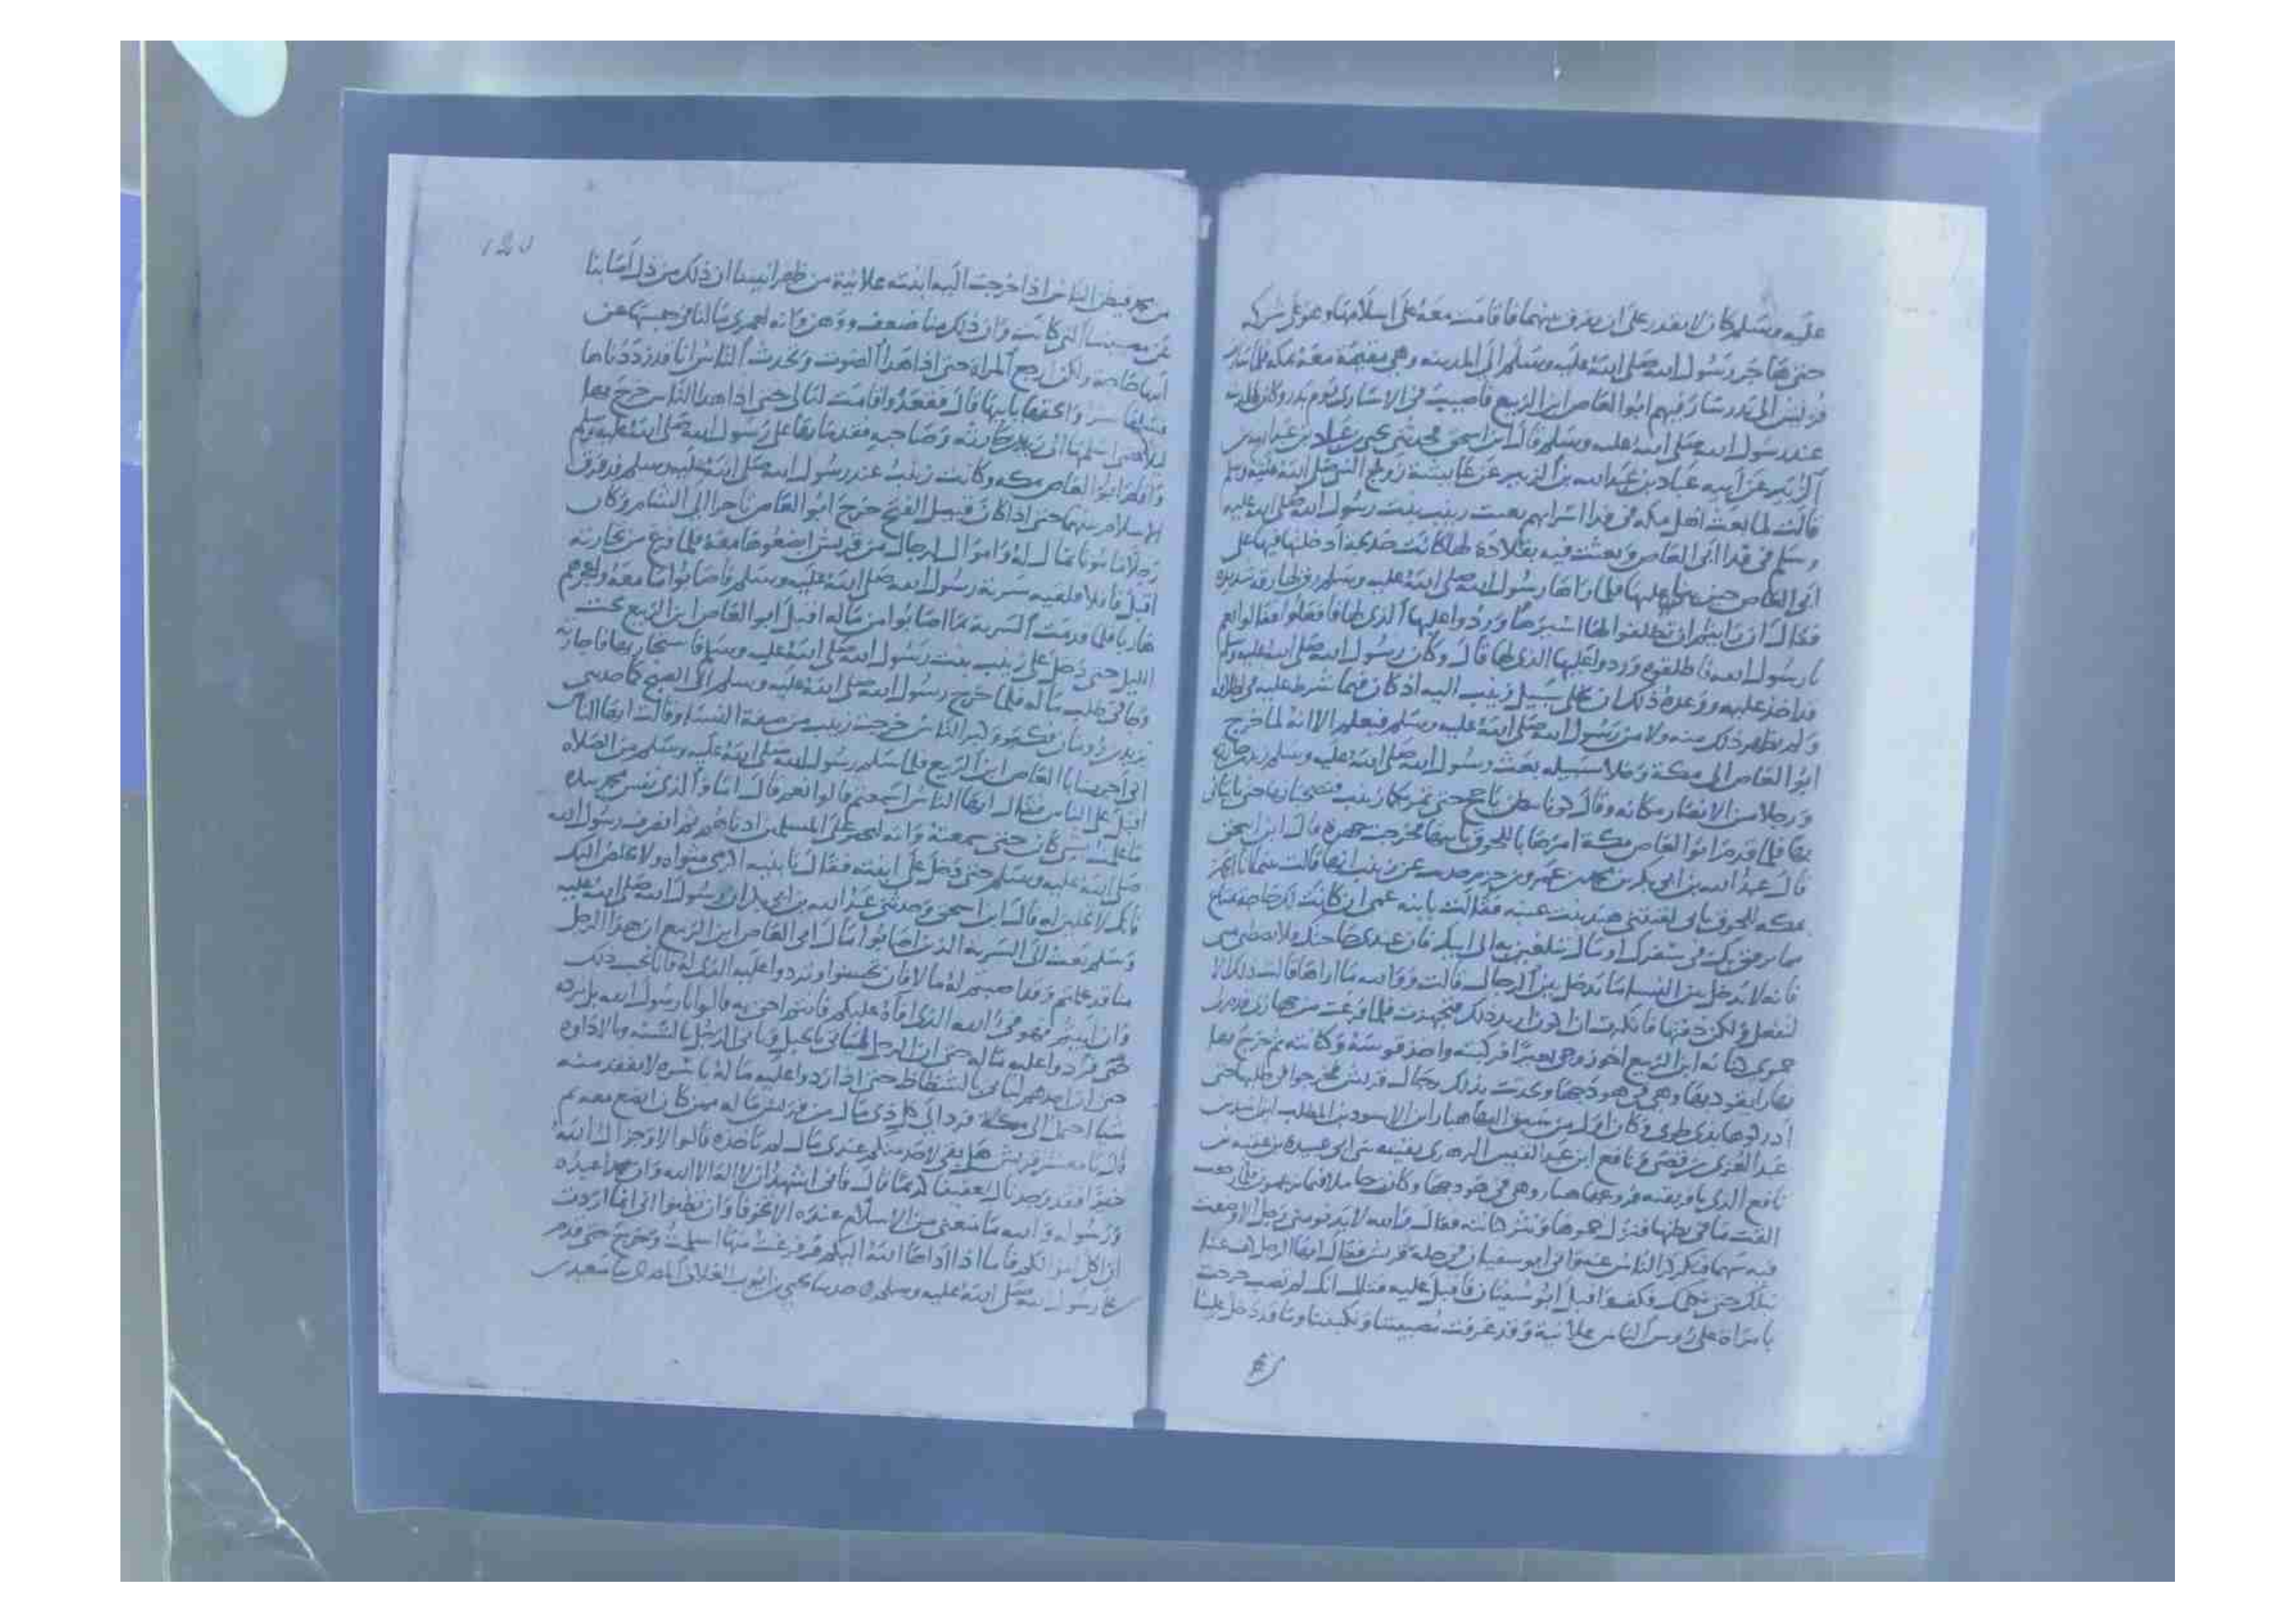 عليه وسلم كان لا يقدر على ان يفرق بينهما فاقامت معه على اسلامها وهو على شركه
حتى هاجر رسول الله صلى الله عليه وسلم الى المدينه وهي مقيمة معه بمكه فلما سارت
قريش الى بدر سار فيهم ابو العاص ابن الربيع فاصيب في الاسارى يوم بدر وكان بالمدينه
عند رسول الله صلى الله عليه وسلم قال ابن اسحق فحدثني يحيى بن عباد بن عبد الله بن
الزبير عن ابيه عباد بن عبد الله بن الزبير عن عايشة زوج النبي صلى الله عليه وسلم
قالت لما بعث اهل مكه في فدا اسرايهم بعثت زينب بنت رسول الله صلى الله عليه
وسلم في فدا ابي العاص وبعثت فيه بقلادة لها كانت خديجة ادخلتها بها على
ابي العاص حين بنى عليها فلما راها رسول الله صلى الله عليه وسلم رق لها رقة شديدة
فقال ان رايتم ان تطلقوا لها اسيرها وتردوا عليها الذي لها فافعلوا فقالوا نعم
يا رسول الله فاطلقوه وردوا عليها الذي لها قال وكان رسول الله صلى الله عليه وسلم
قد اخذ عليه ووعده ذلك ان يخلي سبيل زينب اليه اذ كان فيما شرط عليه في اطلاقه
ولم يظهر ذلك منه ولا من رسول الله صلى الله عليه وسلم فيعلم الا انه لما خرج
ابو العاص الى مكة وخلا سبيله بعث رسول الله صلى الله عليه وسلم زيد بن حارثة
ورجلا من الانصار مكانه وقال كونا ببطن ياجج حتى تمر بكما زينب فتصحبانها حتى تاتياني
بها فلما قدم ابو العاص مكة امرها باللحوق بابيها فخرجت جهرة قال ابن اسحق
قال عبد الله بن ابي بكر بن محمد بن عمرو بن حزم حدثت عن زينب انها قالت بينما انا اتجهز
بمكه للحوق بابي لقيتني هند بنت عتبه فقالت يا بنه عمي ان كانت لك حاجة بمتاع
مما يرفق بك في سفرك او بمال تبلغين به الى ابيك فان عندي حاجتك فلا تضطني مني
فانه لا يدخل بين النسا ما يدخل بين الرجال قالت ووالله ما اراها قالت ذلك الا
لتفعل ولكن خفتها فانكرت ان اكون اريد ذلك فتجهزت فلما فرغت من جهازي قدم لي
حموي كنانه ابن الربيع اخو زوجي بعيرا فركبته واخذ قوسه وكنانته ثم خرج بها
نهارا يقود بها وهي في هودجها وتحدث بذلك رجال قريش فخرجوا في طلبها حتى
ادركوها بذي طوى وكان اول من سبق اليها هبار ابن الاسود بن المطلب ابن اسد بن
عبد العزى بن قصي ونافع ابن عبد القيس الزهري بقيته بني ابي عبيدة بن عقبه بن
نافع الذي بافريقيه فروعها هبار وهي في هودجها وكانت حاملا فيما يزعمون فلما رجعت
القت ما في بطنها فنزل حموها ونثر كنانته فقال والله لا يدنو مني رجل الا وضعت
فيه سهما فتكركر الناس عنه واتى ابو سفيان في جلة قريش فقال ايها الرجل كف عنا
نبلك حتى نكلمك فكف واقبل ابو سفيان فاقبل عليه فقال انك لم تصب خرجت
بامراة على روس الناس علانية وقد عرفت مصيبتنا ونكبتنا وما قد دخل علينا
١٤٥
من محمد فيظن الناس اذا خرجت اليه ابنته علانية من ظهرانينا ان ذلك من ذل اصابنا
عن مصيبتنا التي كانت وان ذلك منا ضعف ووهن وانه لعمري ما لنا في حبسها عن
ابيها حاجة ولكن ارجع المراه حتى اذا هدا الصوت وتحدث الناس انا قد رددناها
فسلها سرا والحقها بابيها قال ففعل واقامت ليالي حتى اذا هدا الناس خرج بها
ليلا حتى اسلمها الى زيد بن حارثه وصاحبه فقدما بها على رسول الله صلى الله عليه وسلم
واقام ابو العاص بمكه وكانت زينب عند رسول الله صلى الله عليه وسلم قد فرق
الاسلام بينهما حتى اذا كان قبيل الفتح خرج ابو العاص تاجرا الى الشام وكان
رجلا مامونا بمال له واموال لرجال من قريش ابضعوها معه فلما فرغ من تجارته
اقبل قافلا فلقيته سرية رسول الله صلى الله عليه وسلم فاصابوا ما معه واعجزهم
هاربا فلما قدمت السرية بما اصابوا من ماله اقبل ابو العاص ابن الربيع تحت
الليل حتى دخل على زينب بنت رسول الله صلى الله عليه وسلم فاستجار بها فاجارته
وجا في طلب ماله فلما خرج رسول الله صلى الله عليه وسلم الى الصبح كما حدثني
يزيد بن رومان فكبر وكبر الناس خرجت زينب من صفة النسا وقالت ايها الناس
اني اجرت ابا العاص ابن الربيع فلما سلم رسول الله صلى الله عليه وسلم من الصلاه
اقبل على الناس فقال ايها الناس اسمعتم قالوا نعم قال اما والذي نفس محمد بيده
ما علمت بشي كان حتى سمعته وانه ليجير على المسلمين ادناهم ثم انصرف رسول الله
صلى الله عليه وسلم حتى دخل على ابنته فقال يا بنيه اكرمي مثواه ولا يخلص اليك
فانك لا تحلين له قال ابن اسحق وحدثني عبد الله بن ابي بكر ان رسول الله صلى الله عليه
وسلم بعث الى السرية الذين اصابوا مال ابي العاص ابن الربيع ان هذا الرجل
منا قد علمتم وقد اصبتم له مالا فان تحسنوا وتردوا عليه الذي له فانا نحب ذلك
وان ابيتم فهو في الله الذي افاه عليكم فانتم احق به قالوا يا رسول الله بل نرده
حتى فردوا عليه ماله حتى ان الرجل لياتي بالحبل وياتي الرجل بالشنه والاداوه
حتى ان احدهم لياتي بالشظاظ حتى اذا ردوا عليه ماله باسره لا يفقد منه
شيا احتمل الى مكة فرد الى كل ذي مال من قريش ماله ممن كان ابضع معه ثم
قال يا معشر قريش هل بقي لاحد منكم عندي مال لم ياخذه قالوا لا وجزاك الله
خيرا فقد وجدناك عفيفا كريما قال فاني اشهد ان لا اله الا الله وان محمدا عبده
ورسوله والله ما منعني من الاسلام عنده الا تخوفا وان تظنوا اني انما اردت
ان اكل اموالكم فاما اذا اداها الله اليكم وفرغت منها اسلمت وخرج حتى قدم
على رسول الله صلى الله عليه وسلم حدثنا يحيى بن ايوب العلاف سعيد بن